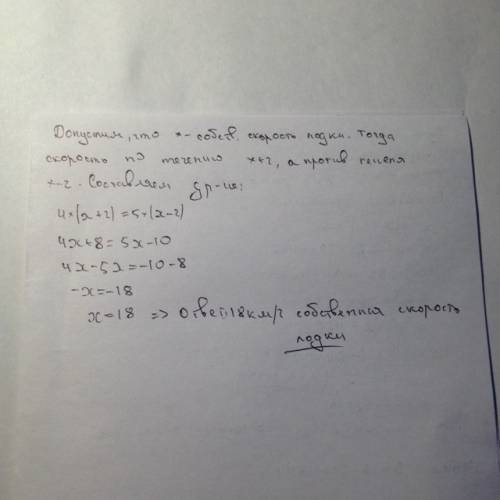 Допустим, что x – собств. скорость лодки. Тогда
скорость по течению x+2, а против течения
x-2. Составляем ур-ие:
4*(x+2)=5*(x-2)
4x+8=5x-10
4x-5x=-10-8
-x=-18
x=18 => Ответ: 18км/ч собственная скорость
лодки